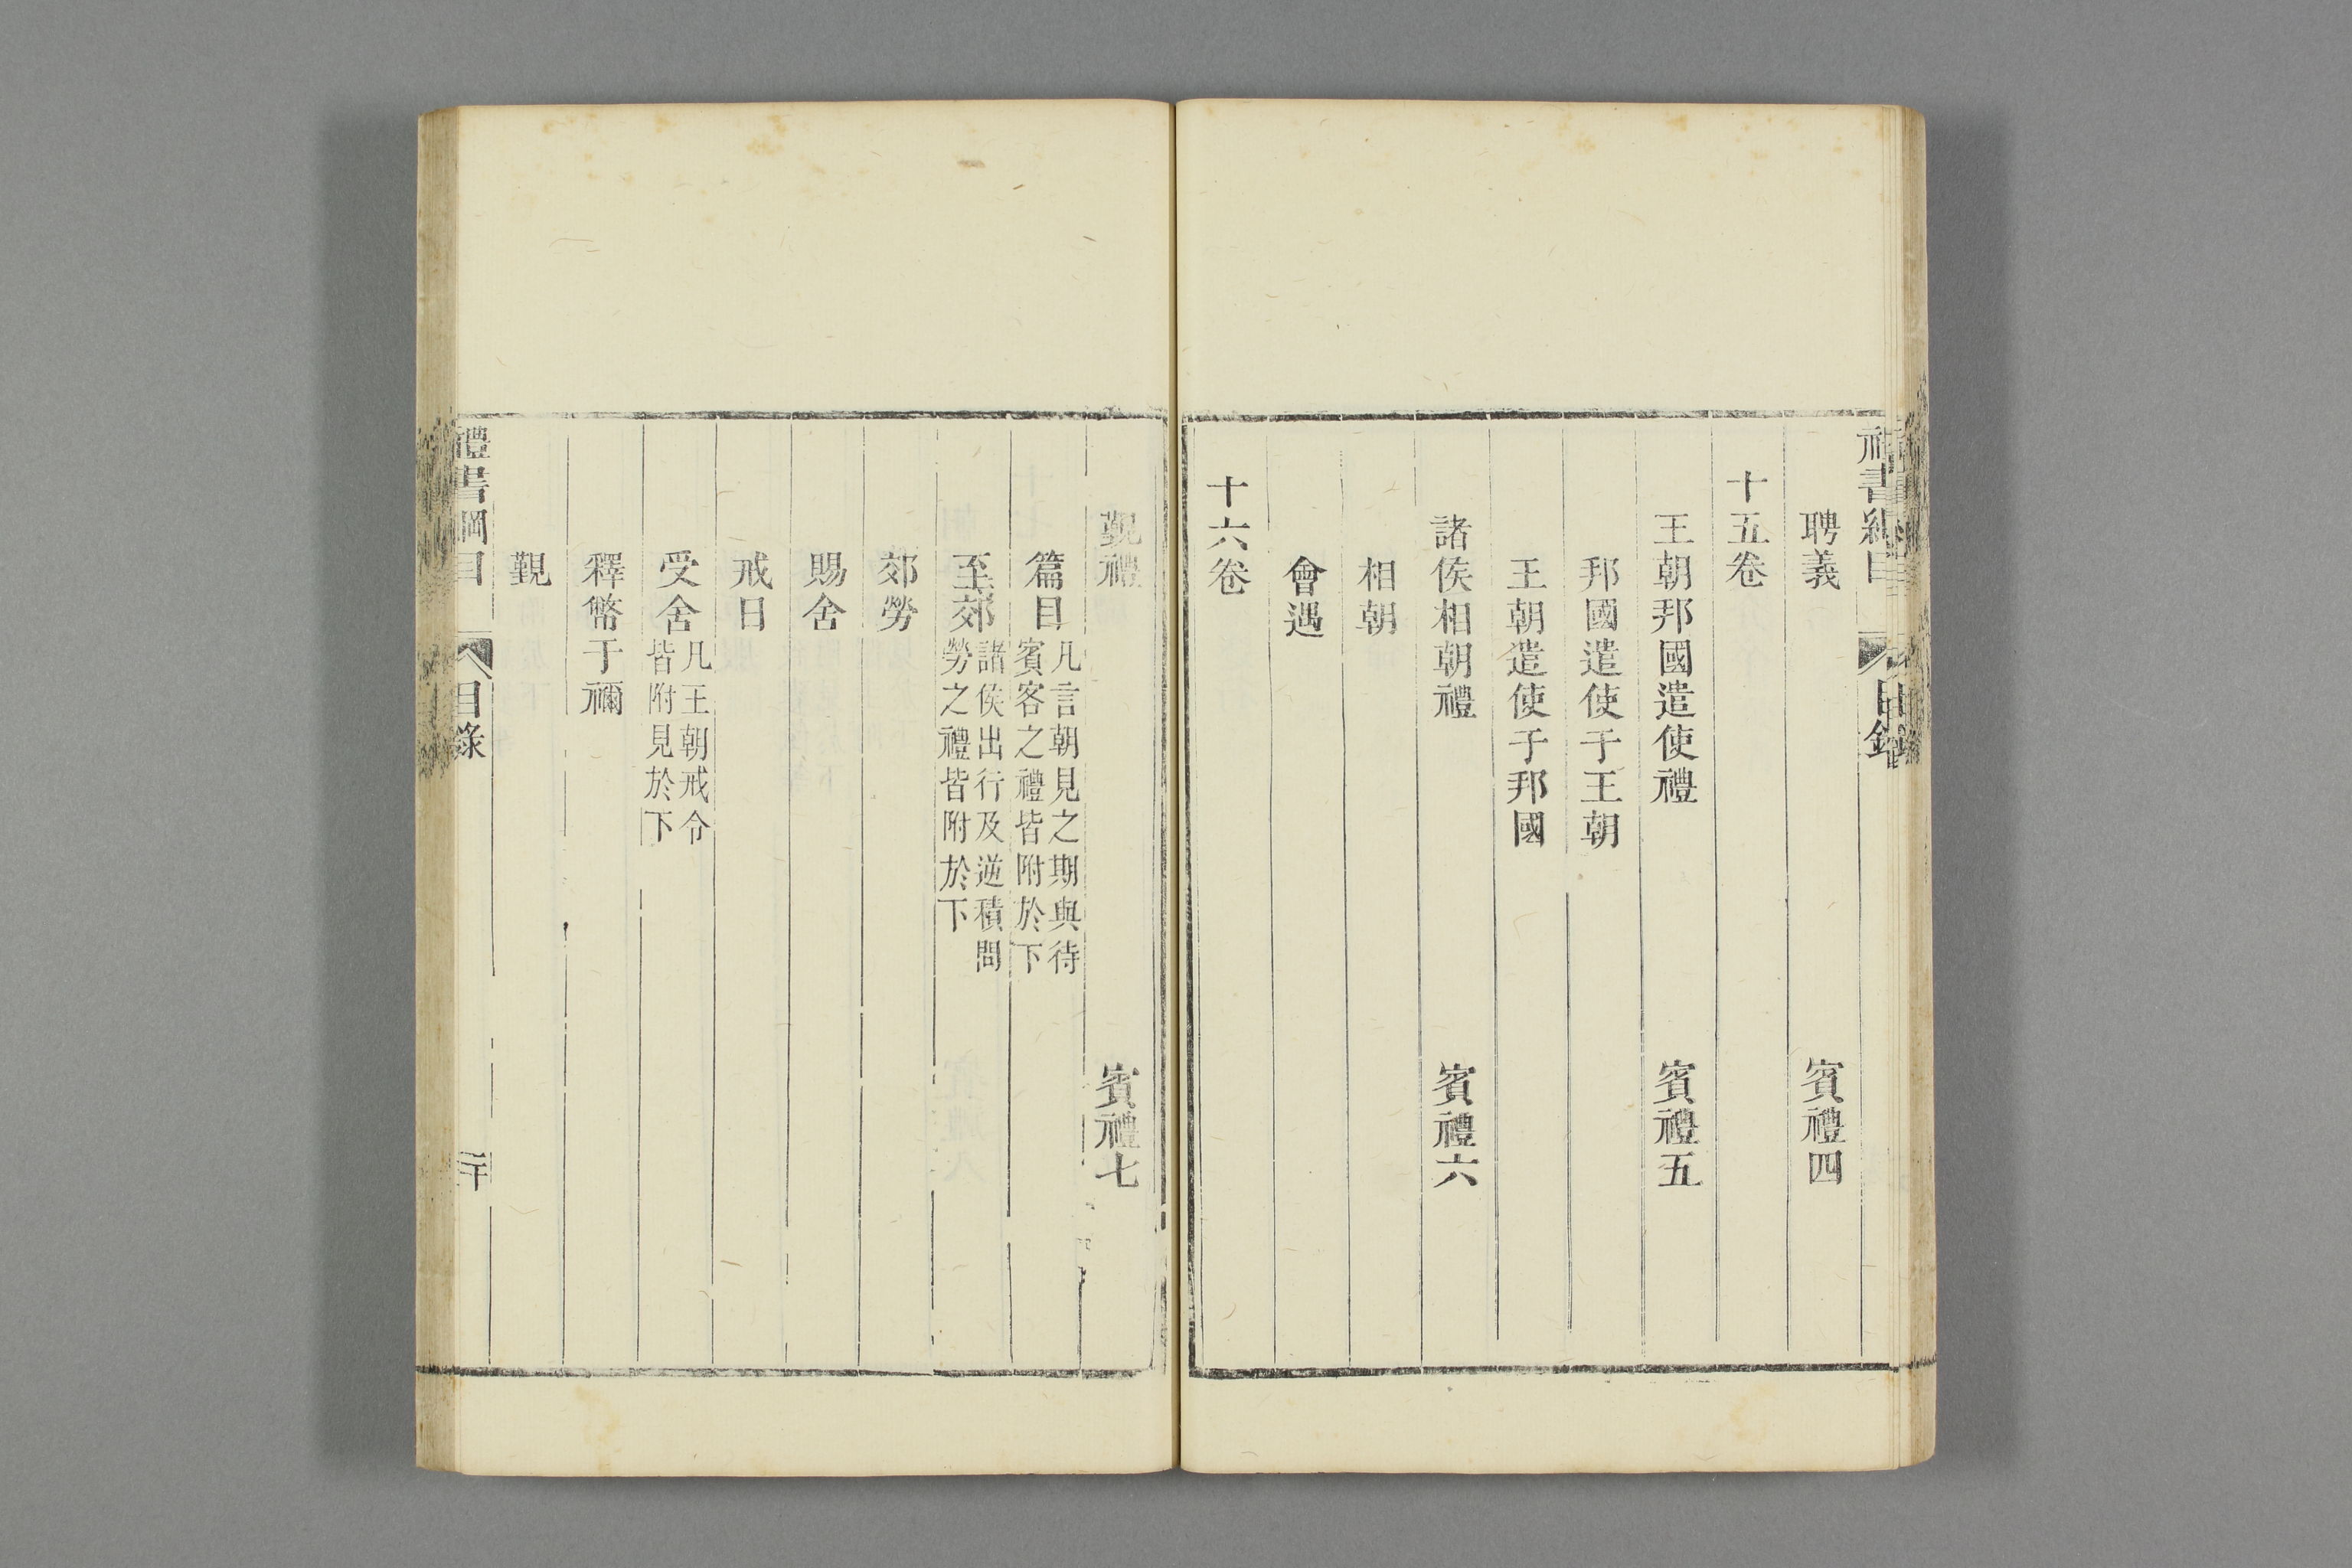 聘義 賓禮四
十五卷
王朝邦國遣使禮 賓禮五
邦國遣使于王朝
王朝遣使于邦國
諸侯相朝禮 賓禮六
相朝
會遇
十六卷
覲禮 賓禮七
篇目 凡言朝見之期與待
賓客之禮皆附於下
至郊 諸侯出行及逆積問
勞之禮皆附於下
郊勞
賜舍
戒日
受舍 凡王朝戒令
皆附見於下
釋幣于禰
覲
禮書綱目 目錄